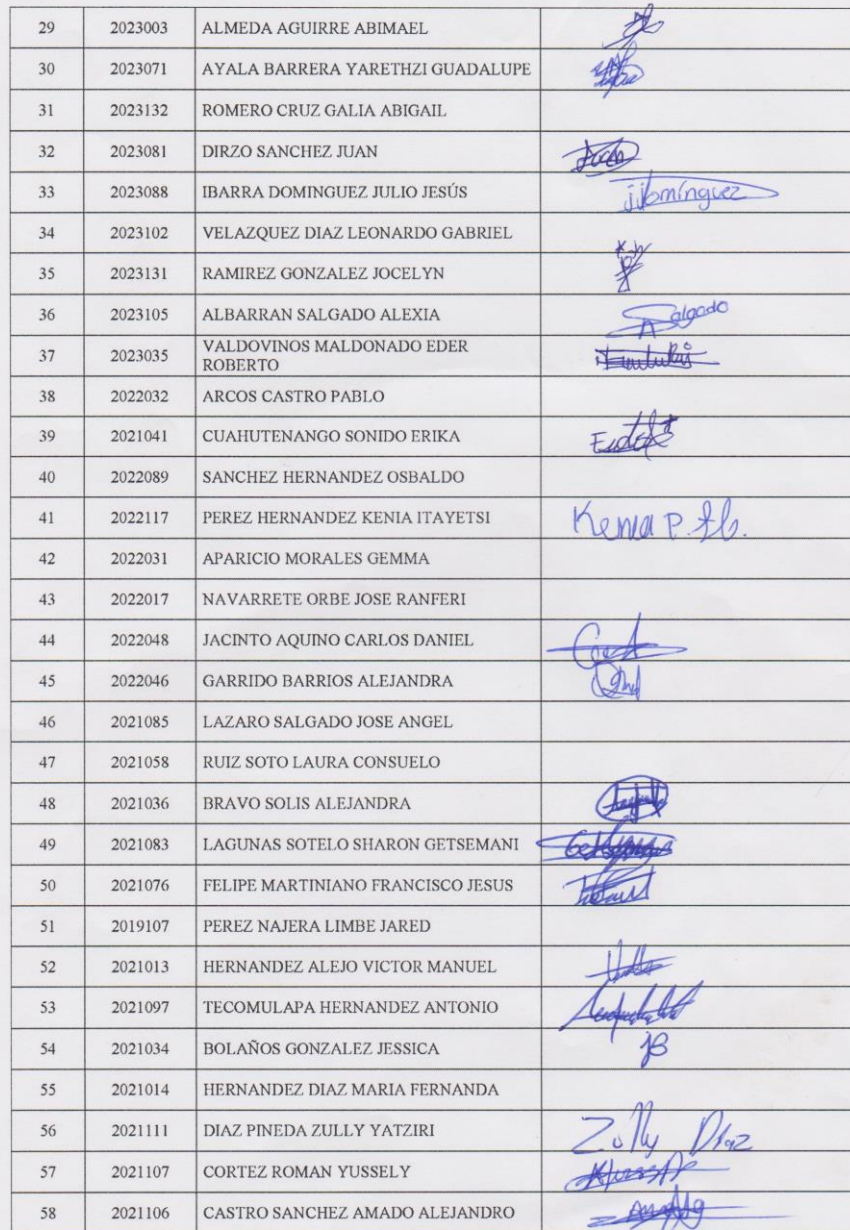 29 2023003 ALMEDA AGUIRRE ABIMAEL
30 2023071 AYALA BARRERA YARETHZI GUADALUPE
31 2023132 ROMERO CRUZ GALIA ABIGAIL
32 2023081 DIRZO SANCHEZ JUAN
33 2023088 IBARRA DOMINGUEZ JULIO JESÚS jjDomínguez
34 2023102 VELAZQUEZ DIAZ LEONARDO GABRIEL
35 2023131 RAMIREZ GONZALEZ JOCELYN
36 2023105 ALBARRAN SALGADO ALEXIA Salgado
37 2023035 VALDOVINOS MALDONADO EDER
ROBERTO
38 2022032 ARCOS CASTRO PABLO
39 2021041 CUAHUTENANGO SONIDO ERIKA
40 2022089 SANCHEZ HERNANDEZ OSBALDO
41 2022117 PEREZ HERNANDEZ KENIA ITAYETSI Kenia P. H.
42 2022031 APARICIO MORALES GEMMA
43 2022017 NAVARRETE ORBE JOSE RANFERI
44 2022048 JACINTO AQUINO CARLOS DANIEL
45 2022046 GARRIDO BARRIOS ALEJANDRA
46 2021085 LAZARO SALGADO JOSE ANGEL
47 2021058 RUIZ SOTO LAURA CONSUELO
48 2021036 BRAVO SOLIS ALEJANDRA
49 2021083 LAGUNAS SOTELO SHARON GETSEMANI
50 2021076 FELIPE MARTINIANO FRANCISCO JESUS
51 2019107 PEREZ NAJERA LIMBE JARED
52 2021013 HERNANDEZ ALEJO VICTOR MANUEL
53 2021097 TECOMULAPA HERNANDEZ ANTONIO
54 2021034 BOLAÑOS GONZALEZ JESSICA jB
55 2021014 HERNANDEZ DIAZ MARIA FERNANDA
56 2021111 DIAZ PINEDA ZULLY YATZIRI Zully Díaz
57 2021107 CORTEZ ROMAN YUSSELY
58 2021106 CASTRO SANCHEZ AMADO ALEJANDRO